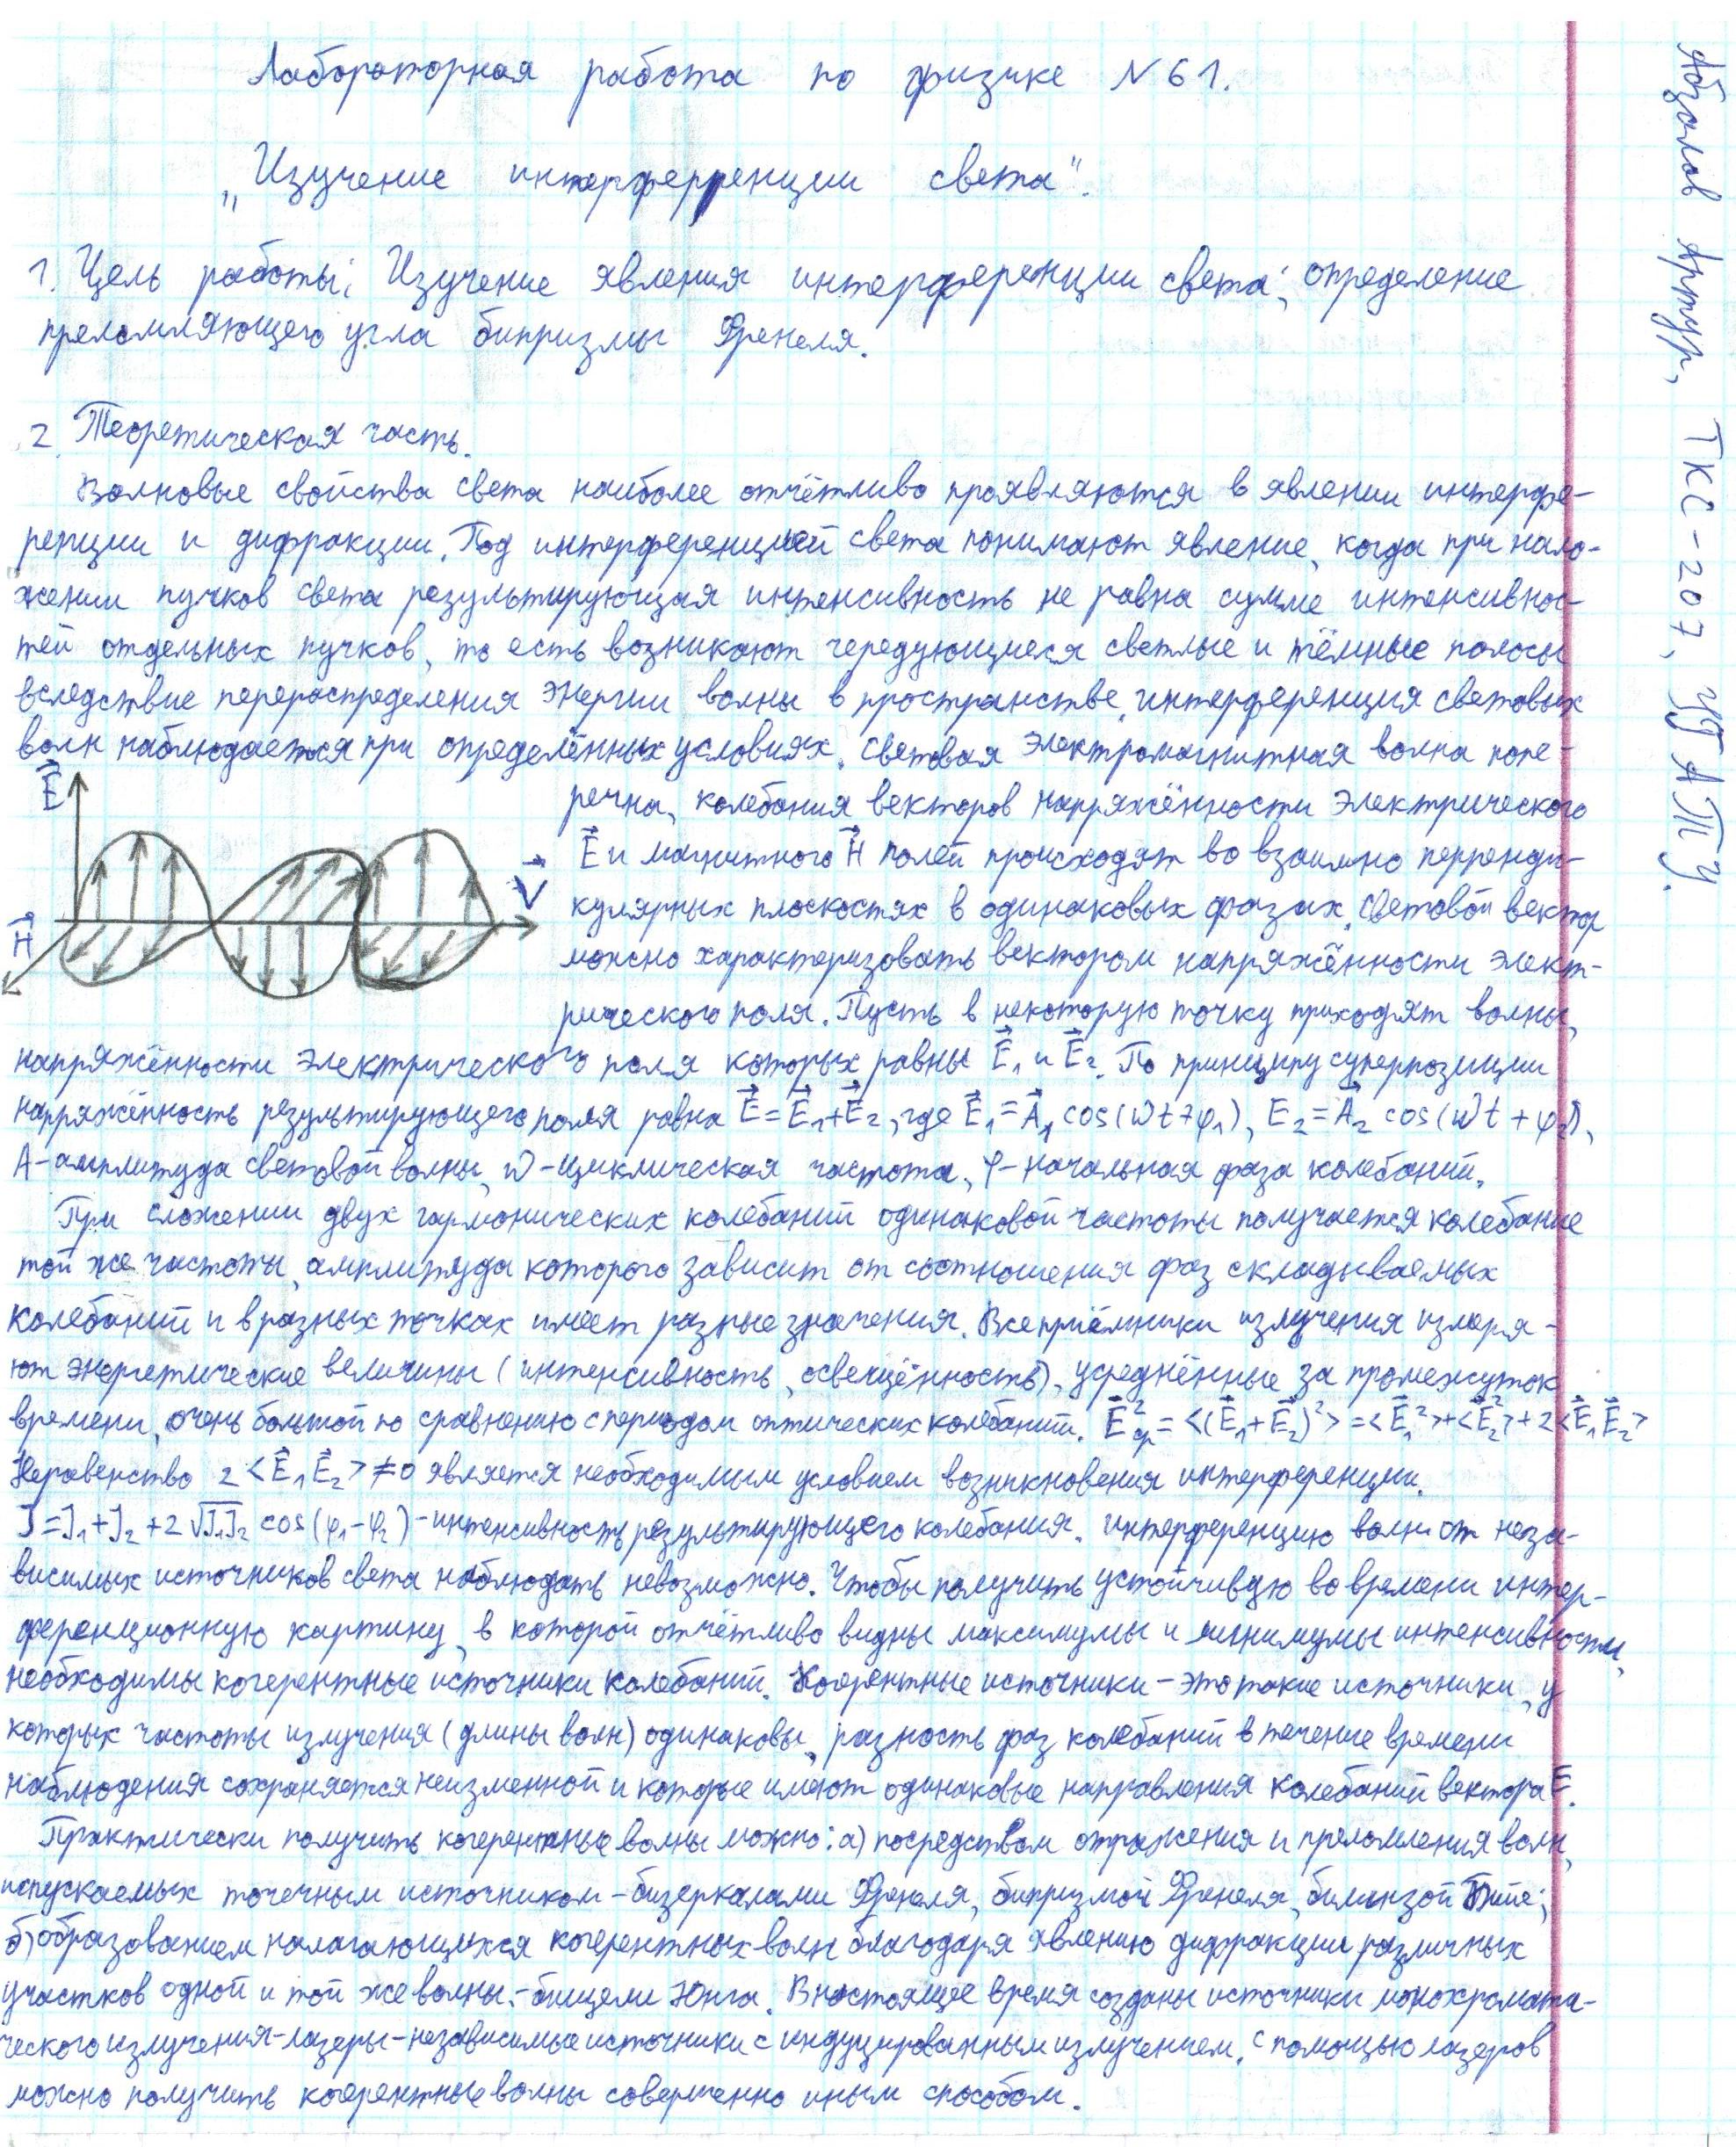 Лабораторная работа по физике N 61.
„Изучение интерференции света".
1. Цель работы: Изучение явления интерференции света; определение
преломляющего угла бипризмы Френеля.
2. Теоретическая часть.
Волновые свойства света наиболее отчётливо проявляются в явлении интерфе-
ренции и дифракции. Под интерференцией света понимают явление, когда при нало-
жении пучков света результирующая интенсивность не равна сумме интенсивнос-
тей отдельных пучков, то есть возникают чередующиеся светлые и тёмные полосы
вследствие перераспределения энергии волны в пространстве. интерференция световых
волн наблюдается при определённых условиях. Световая электромагнитная волна попе-
речна, колебания векторов напряжённости электрического
E⃗ и магнитного H⃗ полей происходят во взаимно перпенди-
кулярных плоскостях в одинаковых фазах. Световой вектор
можно характеризовать вектором напряжённости элект-
рического поля. Пусть в некоторую точку приходят волны,
E⃗
H⃗
V⃗
напряжённости электрического поля которых равны E⃗₁ и E⃗₂. По принципу суперпозиции
напряжённость результирующего поля равна E⃗ = E⃗₁ + E⃗₂, где E⃗₁ = A⃗₁ cos(ωt + φ₁), E₂ = A⃗₂ cos(ωt + φ₂),
A - амплитуда световой волны, ω - циклическая частота, φ - начальная фаза колебаний.
При сложении двух гармонических колебаний одинаковой частоты получается колебание
той же частоты, амплитуда которого зависит от соотношения фаз складываемых
колебаний и в разных точках имеет разные значения. Все приёмники излучения измеря-
ют энергетические величины (интенсивность, освещённость), усреднённые за промежуток
времени, очень большой по сравнению с периодом оптических колебаний. E⃗²ср = <(E⃗₁ + E⃗₂)²> = <E⃗₁²> + <E⃗₂²> + 2<E⃗₁E⃗₂>
Неравенство 2<E⃗₁E⃗₂> ≠ 0 является необходимым условием возникновения интерференции.
J = J₁ + J₂ + 2√J₁J₂ cos(φ₁ - φ₂) - интенсивность результирующего колебания. интерференцию волн от неза-
висимых источников света наблюдать невозможно. Чтобы получить устойчивую во времени интер-
ференционную картину, в которой отчётливо видны максимумы и минимумы интенсивности,
необходимы когерентные источники колебаний. Когерентные источники - это такие источники, у
которых частоты излучения (длины волн) одинаковы, разность фаз колебаний в течение времени
наблюдения сохраняется неизменной и которые имеют одинаковые направления колебаний вектора E⃗.
Практически получить когерентные волны можно: а) посредством отражения и преломления волн,
испускаемых точечным источником - бизеркалами Френеля, бипризмой Френеля, билинзой Бийе;
б) образованием налагающихся когерентных волн благодаря явлению дифракции различных
участков одной и той же волны. - бищели Юнга. В настоящее время созданы источники монохромати-
ческого излучения - лазеры - независимые источники с индуцированным излучением. С помощью лазеров
можно получить когерентные волны совершенно иным способом.
Абзалов Артур, ТКС-207, УГАТУ.